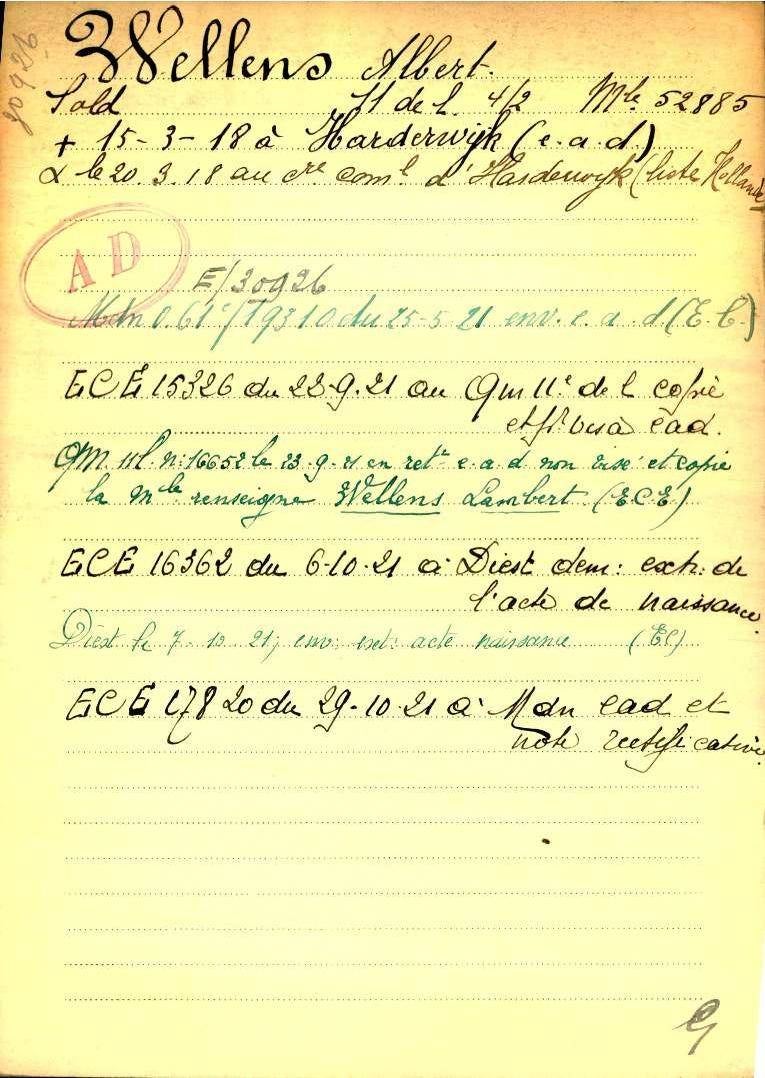 30926
Wellens Albert.
Sold 11 de l. 4/2 Mle 52885
+ 15-3-18 à Harderwijk (e.a.d)
le 20.3.18 au cre coml d'Harderwyk (liste Hollande
A D
E/30926
Mdn 061c/19310 du 25-5-21 env. e.a.d (E.C.)
ECE 15326 du 22-9-21 au QM 11e de l copie
et visa ead.
QM 11l. n: 16652 le 23-9-21 en rete e.a.d non visé et copie
la mle renseigne Wellens Lambert (ECE)
ECE 16362 du 6-10-21 à Diest dem: extr: de
l'acte de naissance.
Diest le 7-10-21; env: ext: acte naissance (EC)
ECE 17820 du 29-10-21 à Mdn ead et
note rectificative.